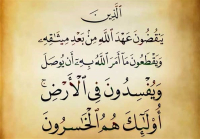 ٱلَّذِينَ
يَنقُضُونَ عَهْدَ ٱللَّهِ مِنۢ بَعْدِ مِيثَٰقِهِۦ
وَيَقْطَعُونَ مَآ أَمَرَ ٱللَّهُ بِهِۦٓ أَن يُوصَلَ
وَيُفْسِدُونَ فِى ٱلْأَرْضِ ۚ
أُو۟لَٰٓئِكَ هُمُ ٱلْخَٰسِرُونَ